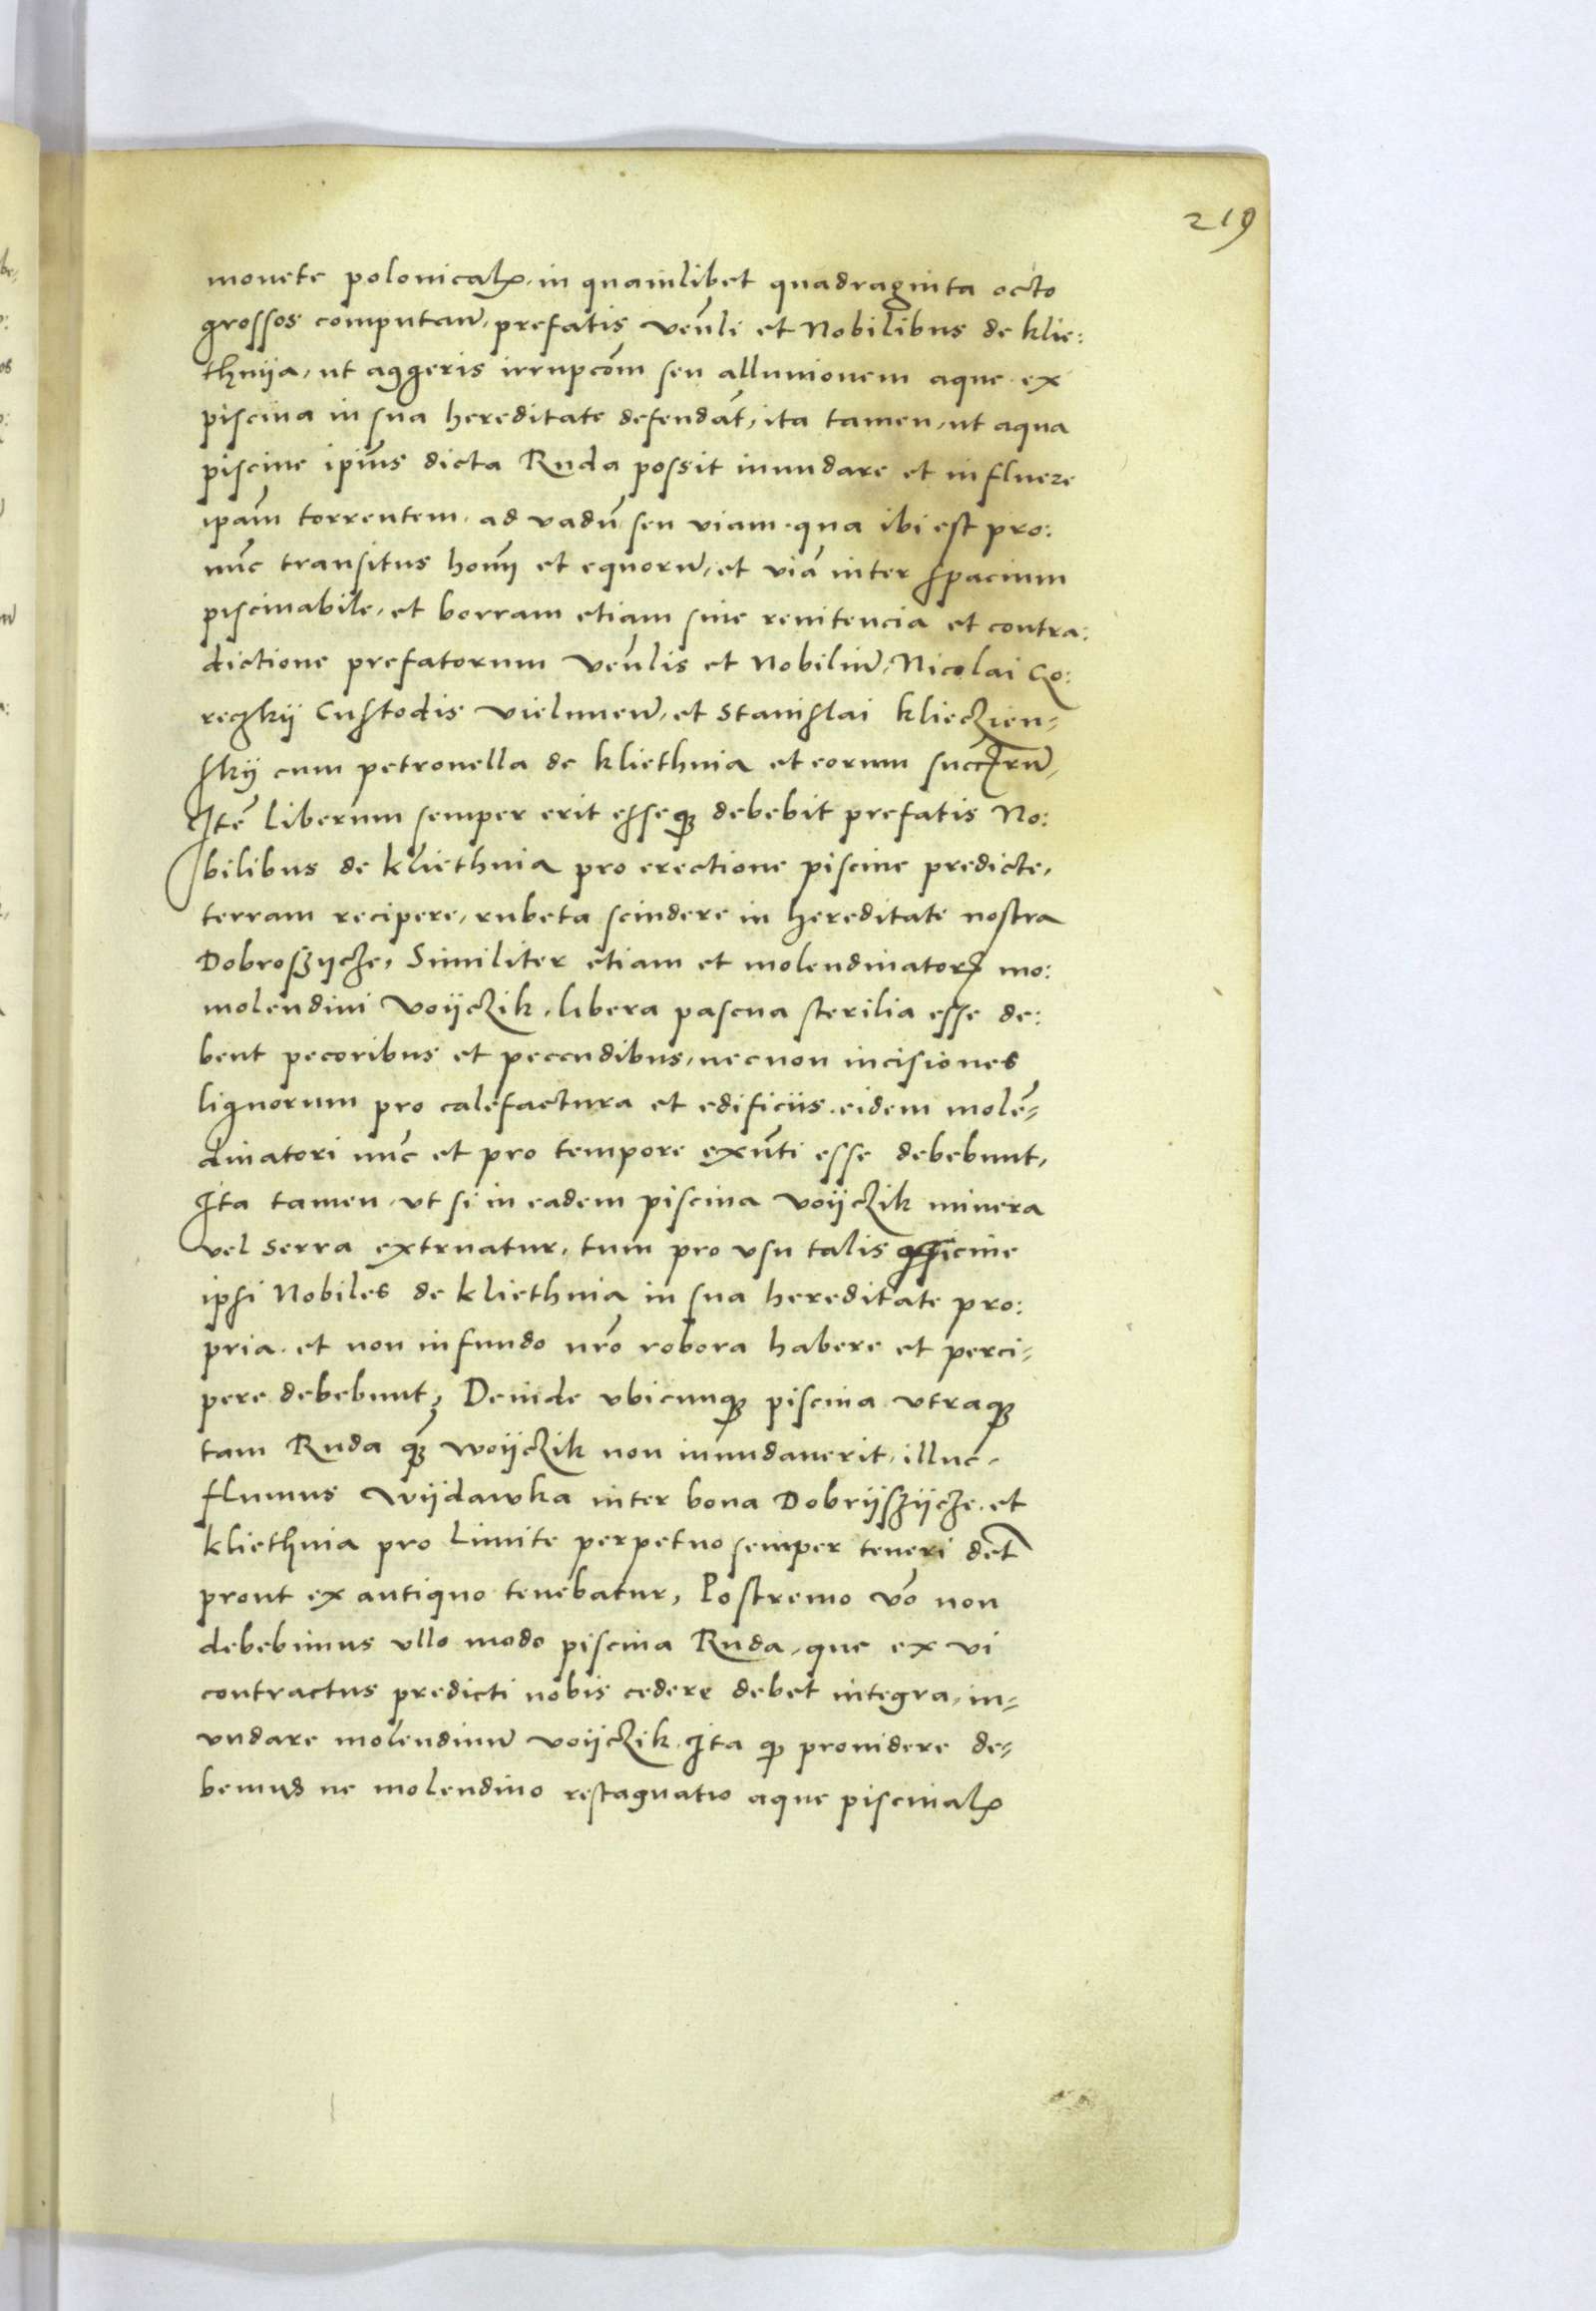 219
monete polonicalꝫ, in quamlibet quadraginta octo
grossos computan̄, prefatis veñli et Nobilibus de klie:
thnija, ut aggeris irrupcõm seu alluuionem aque ex
piscina in sua hereditate defendãt, ita tamen, ut aqua
piscine ip̃ius dicta Ruda possit inundare et influere
ipãm torrentem, ad vadũ seu viam, qua ibi est pro:
nũc transitus hom̃i et equorũ, et viã inter spacium
piscinabile, et borram etiam sine renitencia et contra:
dictione prefatorum veñlis et Nobiliũ, Nicolai Co:
reczkij Custodis vielunen̄, et Stanislai klieczien=
skij cum petronella de kliethnia et eorum succ̃rũ,
Itẽ liberum semper erit esseqꝫ debebit prefatis No:
bilibus de kliethnia pro erectione piscine predicte,
terram recipere, rubeta scindere in hereditate nostra
Dobroszijcze, Similiter etiam et molendinatorꝭ mo:
molendini voijczik, libera pascua sterilia esse de:
bent pecoribus et peccudibus, necnon incisiones
lignorum pro calefactura et edificiis eidem molẽ=
dinatori nũc et pro tempore exñti esse debebunt,
Ita tamen, vt si in eadem piscina voijczik minera
vel serra extruatur, tum pro vsu talis officine
ipsi Nobiles de kliethnia in sua hereditate pro:
pria, et non in fundo nr̃o robora habere et perci=
pere debebunt, Deinde vbicunqꝫ piscina vtraqꝫ
tam Ruda qꝫ̃ woijczik non inundauerit, illuc
fluuius wijdawka inter bona Dobrijszijcze, et
kliethnia pro limite perpetuo semper teneri dẽt
prout ex antiquo tenebatur, Postremo võ non
debebimus vllo modo piscina Ruda, que ex vi
contractus predicti nobis cedere debet integra, in=
undare molendinũ voijczik, Ita qꝫ prouidere de=
bemus ne molendino restagnatio aque piscinalꝫ